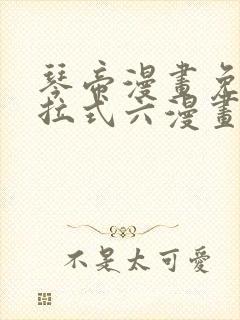 琴帝漫畫免
拉式六漫畫
不是太可愛